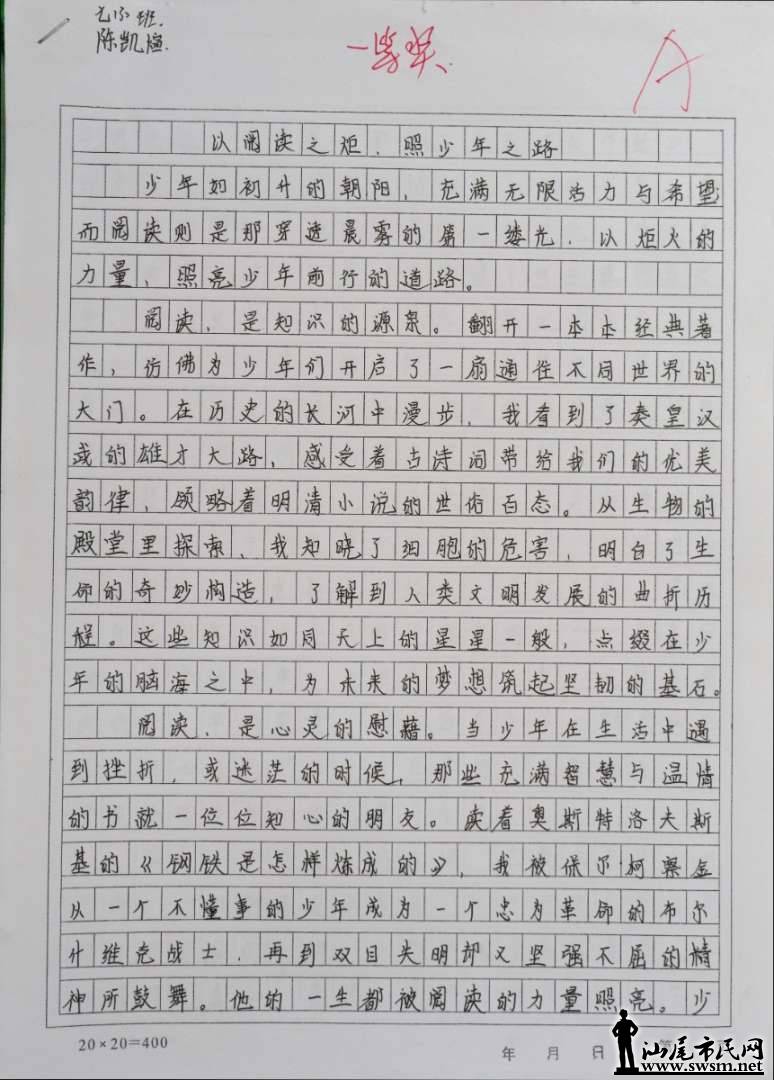 班
陈凯煊
一等奖
A
以阅读之炬，照少年之路
少年如初升的朝阳，充满无限活力与希望
而阅读则是那穿透晨雾的第一缕光，以炬火的
力量，照亮少年前行的道路。
阅读，是知识的源泉。翻开一本本经典著
作，仿佛为少年们开启了一扇通往不同世界的
大门。在历史的长河中漫步，我看到了秦皇汉
武的雄才大路，感受着古诗词带给我们的优美
韵律，领略着明清小说的世俗百态。从生物的
殿堂里探索，我知晓了细胞的危害，明白了生
命的奇妙构造，了解到人类文明发展的曲折历
程。这些知识如同天上的星星一般，点缀在少
年的脑海之中，为未来的梦想筑起坚韧的基石。
阅读，是心灵的慰藉。当少年在生活中遇
到挫折，或迷茫的时候，那些充满智慧与温情
的书就一位位知心的朋友。读着奥斯特洛夫斯
基的《钢铁是怎样炼成的》，我被保尔柯察金
从一个不懂事的少年成为一个忠为革命的布尔
什维克战士，再到双目失明却又坚强不屈的精
神所鼓舞。他的一生都被阅读的力量照亮。少
20×20=400
年 月 日 第
汕尾市民网
www.swsm.net